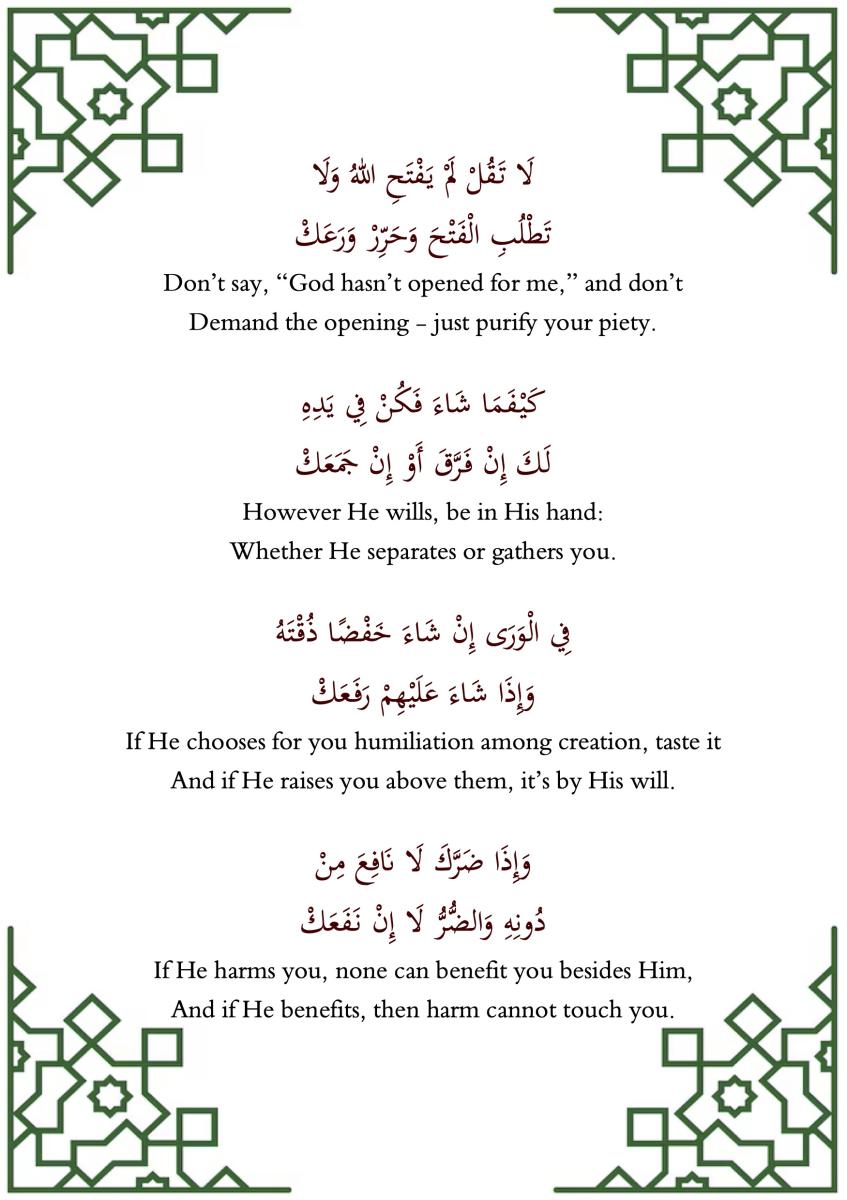 لَا تَقُلْ لَمْ يَفْتَحِ اللهُ وَلَا
تَطْلُبِ الْفَتْحَ وَحَرِّرْ وَرَعَكْ
Don’t say, “God hasn’t opened for me,” and don’t
Demand the opening – just purify your piety.
كَيْفَمَا شَاءَ فَكُنْ فِي يَدِهِ
لَكَ إِنْ فَرَّقَ أَوْ إِنْ جَمَعَكْ
However He wills, be in His hand:
Whether He separates or gathers you.
فِي الْوَرَى إِنْ شَاءَ خَفْضًا ذُقْتَهُ
وَإِذَا شَاءَ عَلَيْهِمْ رَفَعَكْ
If He chooses for you humiliation among creation, taste it
And if He raises you above them, it’s by His will.
وَإِذَا ضَرَّكَ لَا نَافِعَ مِنْ
دُونِهِ وَالضُّرُّ لَا إِنْ نَفَعَكْ
If He harms you, none can benefit you besides Him,
And if He benefits, then harm cannot touch you.